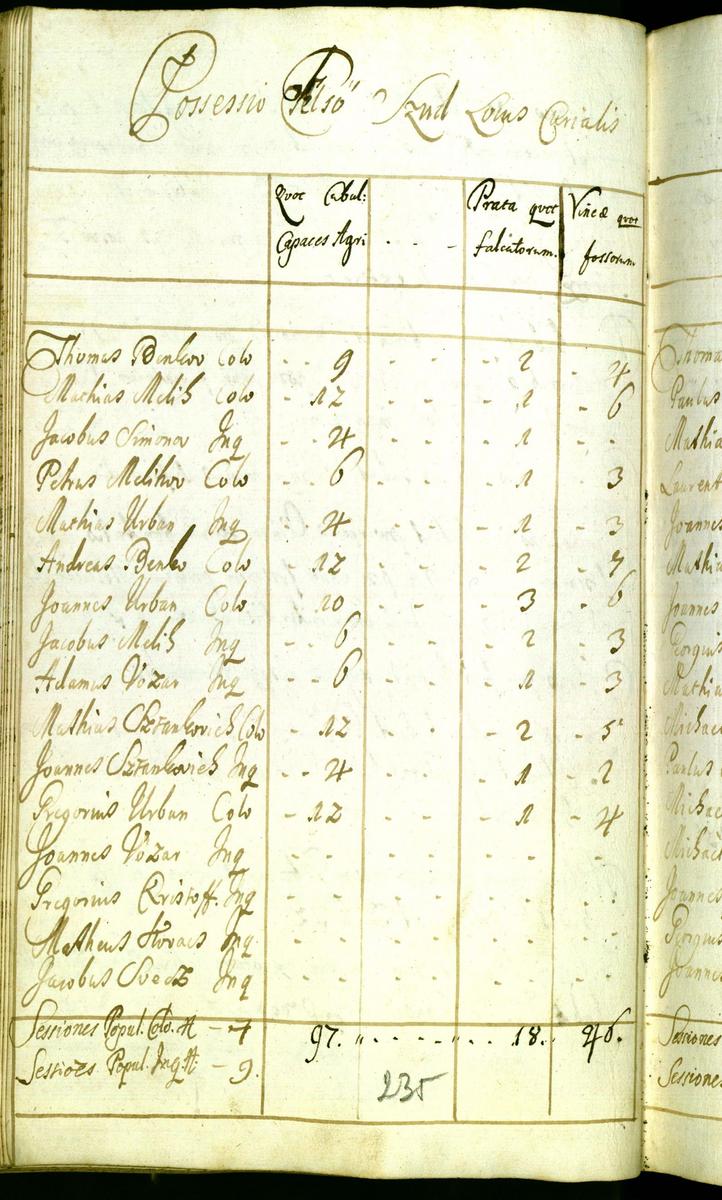 Possessio Felső Szud Locus Curialis
Quot Cubul: Capaces Agri - - - Prata quot falcatorum. Vineæ quot fossorum
Thomas Benkov Colo - - 9 - - - 2 - 4
Mathias Melih Colo - 12 - - - 1 - 6
Jacobus Simonov Inq - 4 - - - 1 - -
Petrus Melihov Colo - 6 - - - 1 - 3
Mathias Urban Inq - 4 - - - 1 - 3
Andreas Benko Colo - 12 - - - 2 - 7
Joannes Urban Colo 10 - - 3 - 6
Jacobus Melih Inq - - 6 - - - 2 - 3
Adamus Vozar Inq - - 6 - - - 1 - 3
Mathias Sztankovich Colo - 12 - - - 2 - 5
Joannes Sztankovich Inq - - 4 - - - 1 - 2
Gregorius Urban Colo - 12 - - - 1 - 4
Joannes Vozar Inq - - - - - - - -
Gregorius Kristoff. Inq - - - - - - - -
Matheus Kovacs Inq - - - - - - - -
Jacobus Svecz Inq - - - - - - - -
Sessiones Popul. Colo. # - 7 97. 18. 46.
Sessioes Popul. Inq. # - 9.
235
Thoma
Paulus
Mathia
Laurent
Joannes
Mathia
Joannes
Georgius
Mathia
Michae
Paulus
Michae
Michae
Joannes
Georgius
Joannes
Sessiones
Sessiones